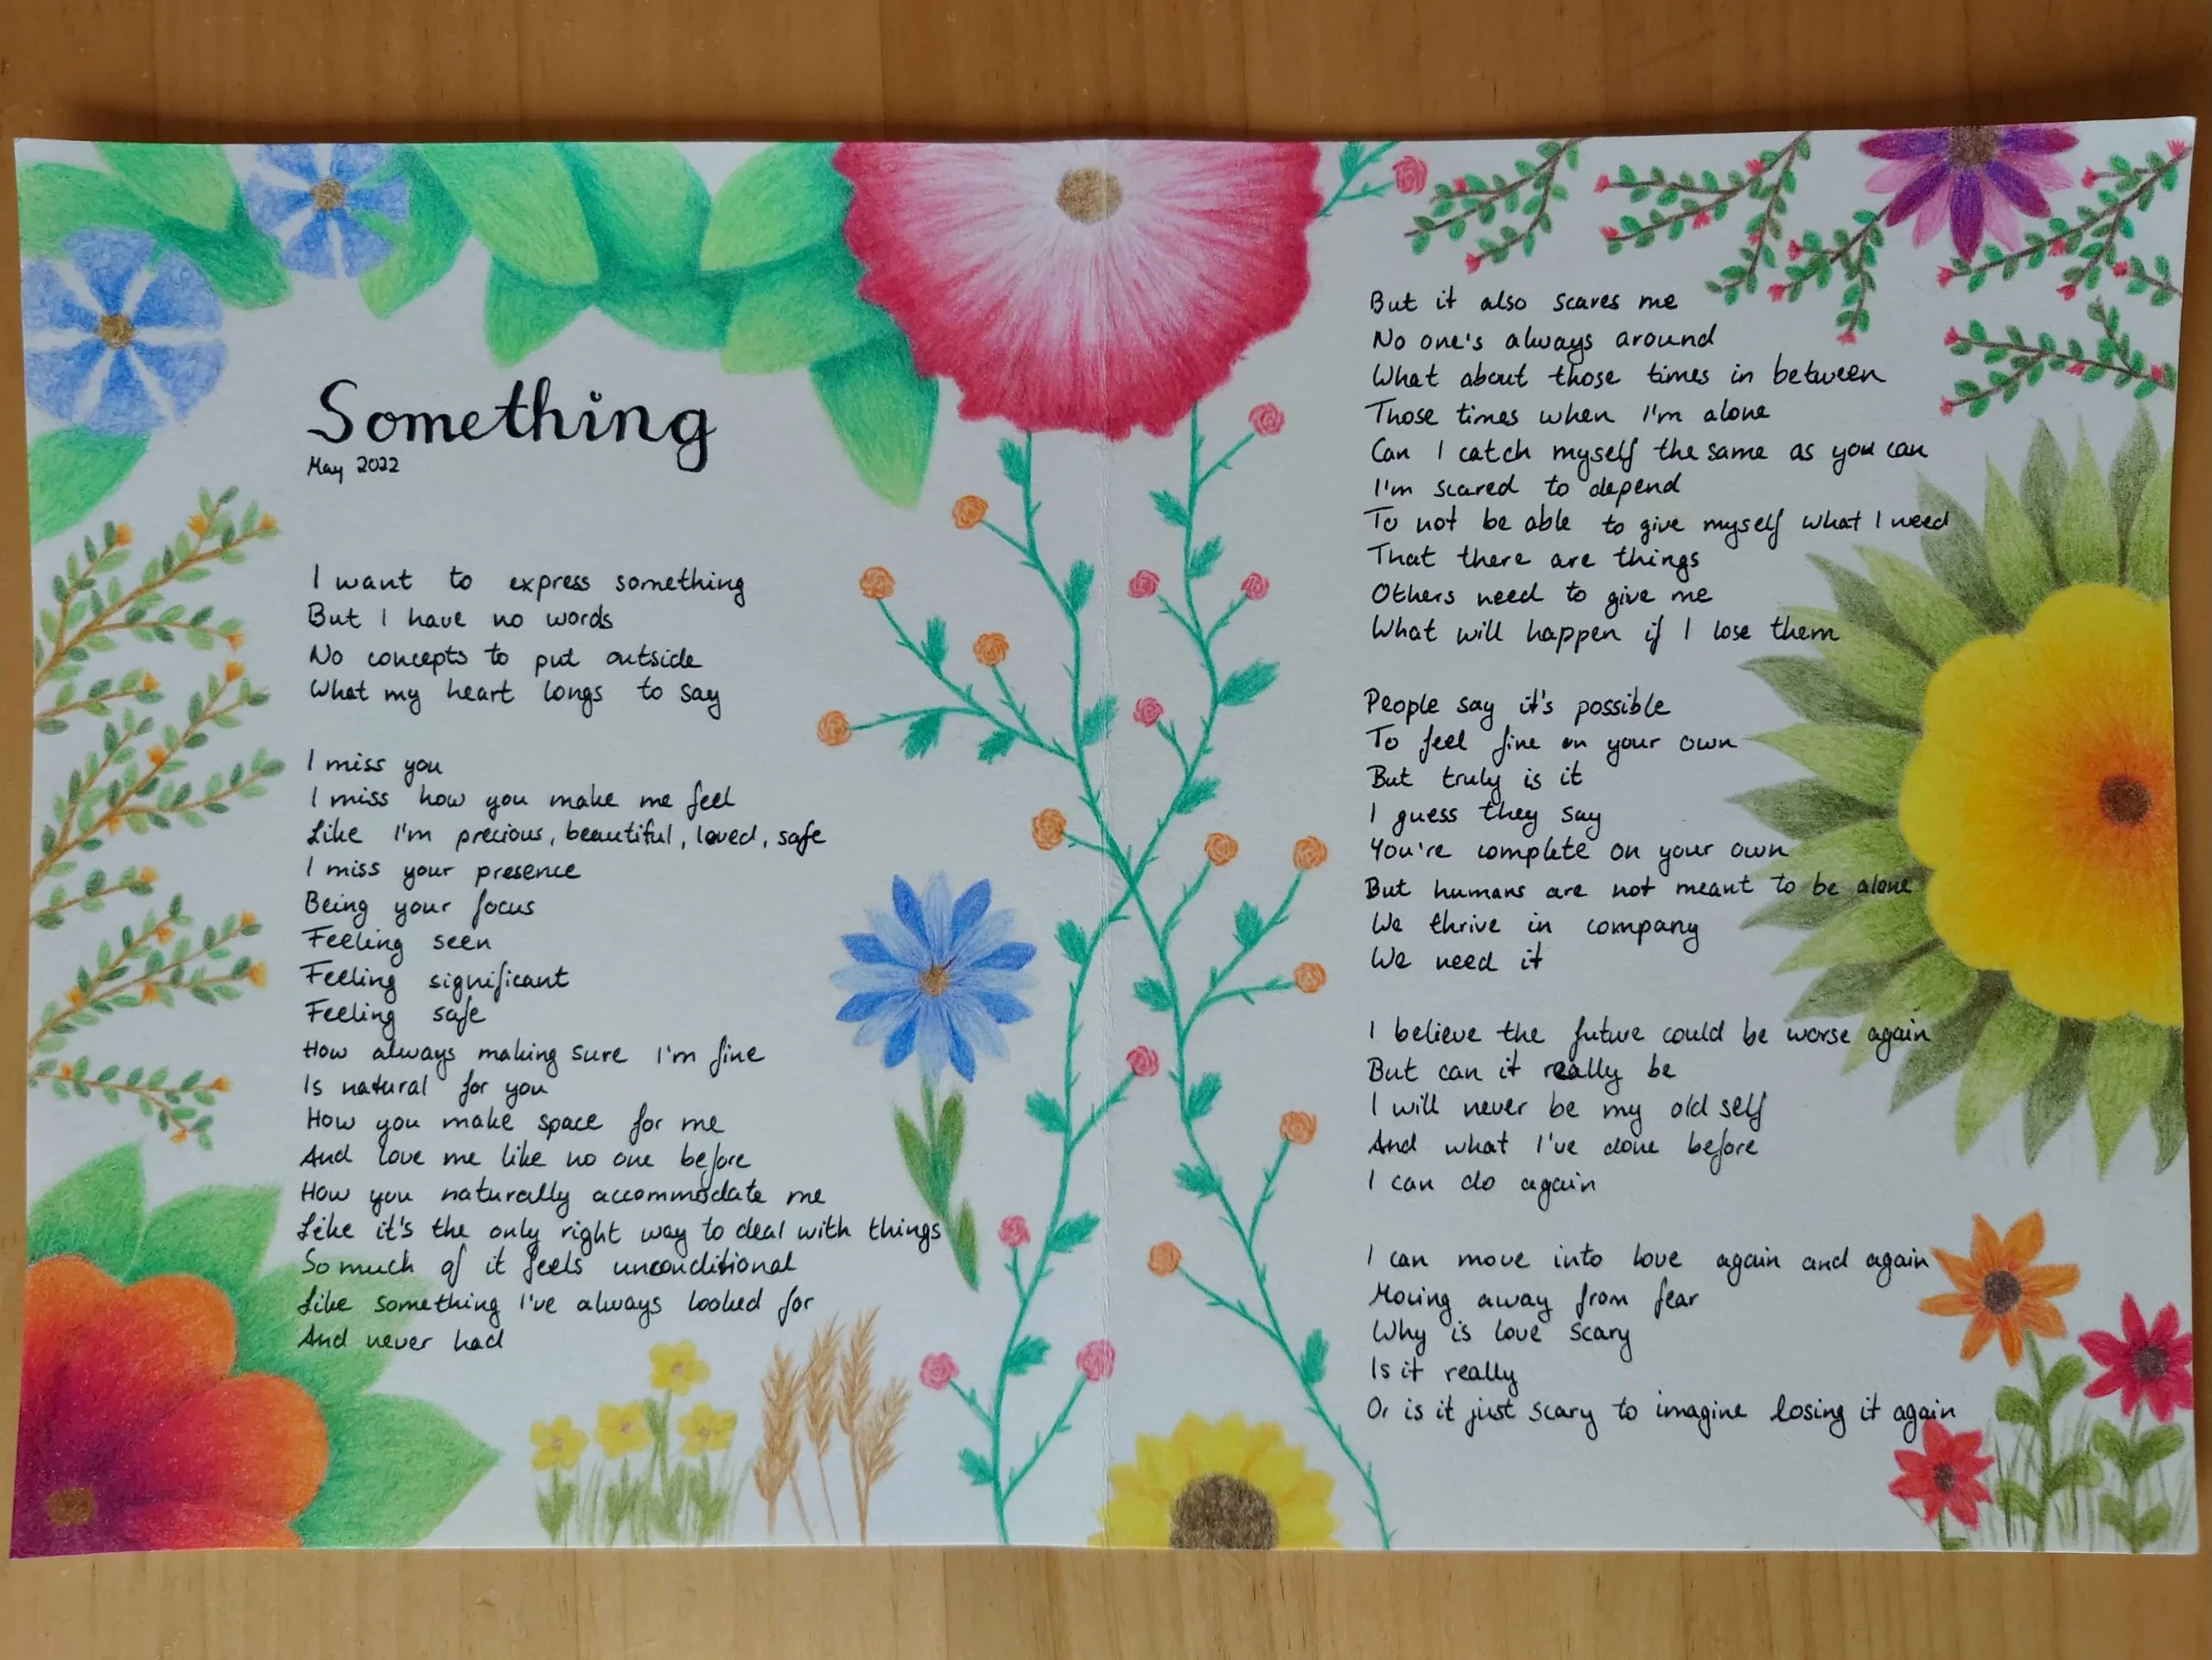 Something
May 2022
I want to express something
But I have no words
No concepts to put outside
What my heart longs to say
I miss you
I miss how you make me feel
Like I'm precious, beautiful, loved, safe
I miss your presence
Being your focus
Feeling seen
Feeling significant
Feeling safe
How always making sure I'm fine
Is natural for you
How you make space for me
And love me like no one before
How you naturally accommodate me
Like it's the only right way to deal with things
So much of it feels unconditional
Like something I've always looked for
And never had
But it also scares me
No one's always around
What about those times in between
Those times when I'm alone
Can I catch myself the same as you can
I'm scared to depend
To not be able to give myself what I need
That there are things
Others need to give me
What will happen if I lose them
People say it's possible
To feel fine on your own
But truly is it
I guess they say
You're complete on your own
But humans are not meant to be alone
We thrive in company
We need it
I believe the future could be worse again
But can it really be
I will never be my old self
And what I've done before
I can do again
I can move into love again and again
Moving away from fear
Why is love scary
Is it really
Or is it just scary to imagine losing it again